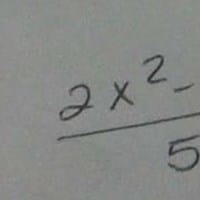 2x²-
5